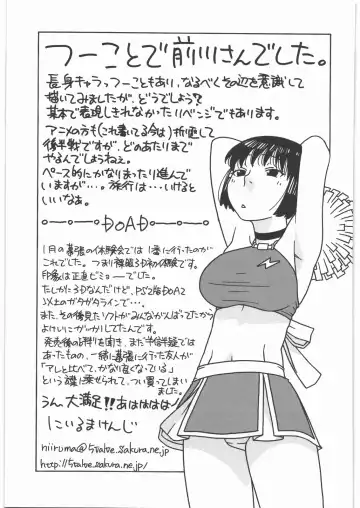 つーことで前川さんでした。
長身キャラっつーこともあり、なるべくその辺を意識して
描いてみましたが、どうでしょう?
基本で表現しきれなかったリベンジでもあります。
アニメの方も(これ書いてる今は)折り返して
後半戦ですが、どのあたりまで
やるんでしょうねぇ。
ペース的にかなりまったり進んで
いますが…。発行は…いけると
いいなぁ。
DOAD
1月の幕張の体験会では1番に行ったのが
これでした。つまり
印象は正直ビミョーでした。
たしかに3Dなんだけど、PS2版DOA2
がガタガタラインで…。
また、その後見たソフトがみんながんばってたから
よけいにがっかりしてたんです。
発売後の評判を聞き、まだ半信半疑では
あったものの、一緒に幕張に行った友人が
「アレと比べて、かなり良くなっている」
という話に乗せられて、つい買ってしまい
ました。
うん、大満足!!あはははは
にいるまけんじ
niiruma@5valve.sakura.ne.jp
http://5valve.sakura.ne.jp/